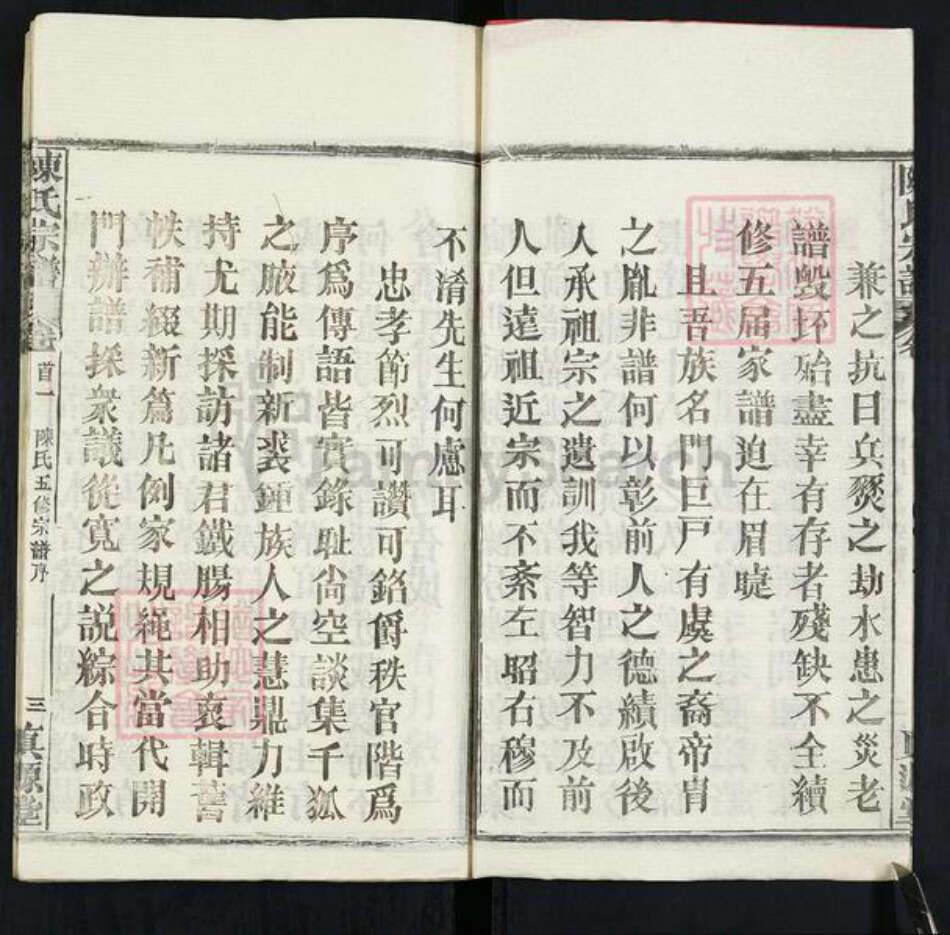 兼之抗日兵燹之劫水患之災老
譜毁坏殆盡幸有存者殘缺不全續
修五届家譜迫在眉睫
且吾族名門巨戸有虞之裔帝胄
之胤非譜何以彰前人之德績啟後
人承祖宗之遺訓我等智力不及前
人但遠祖近宗而不紊左昭右穆而
不淆先生何慮耳
忠孝節烈可讚可銘爵秩官階爲
序爲傳語皆實錄耻尙空談集千狐
之腋能制新裘鍾族人之慧鼎力維
持尤期採訪諸君鐵腸相助裒輯舊
帙補綴新篇凡例家規繩其當代開
門辦譜採衆議從寛之説綜合時政
陳氏宗譜
首一
陳氏五修宗譜序
三
真源堂